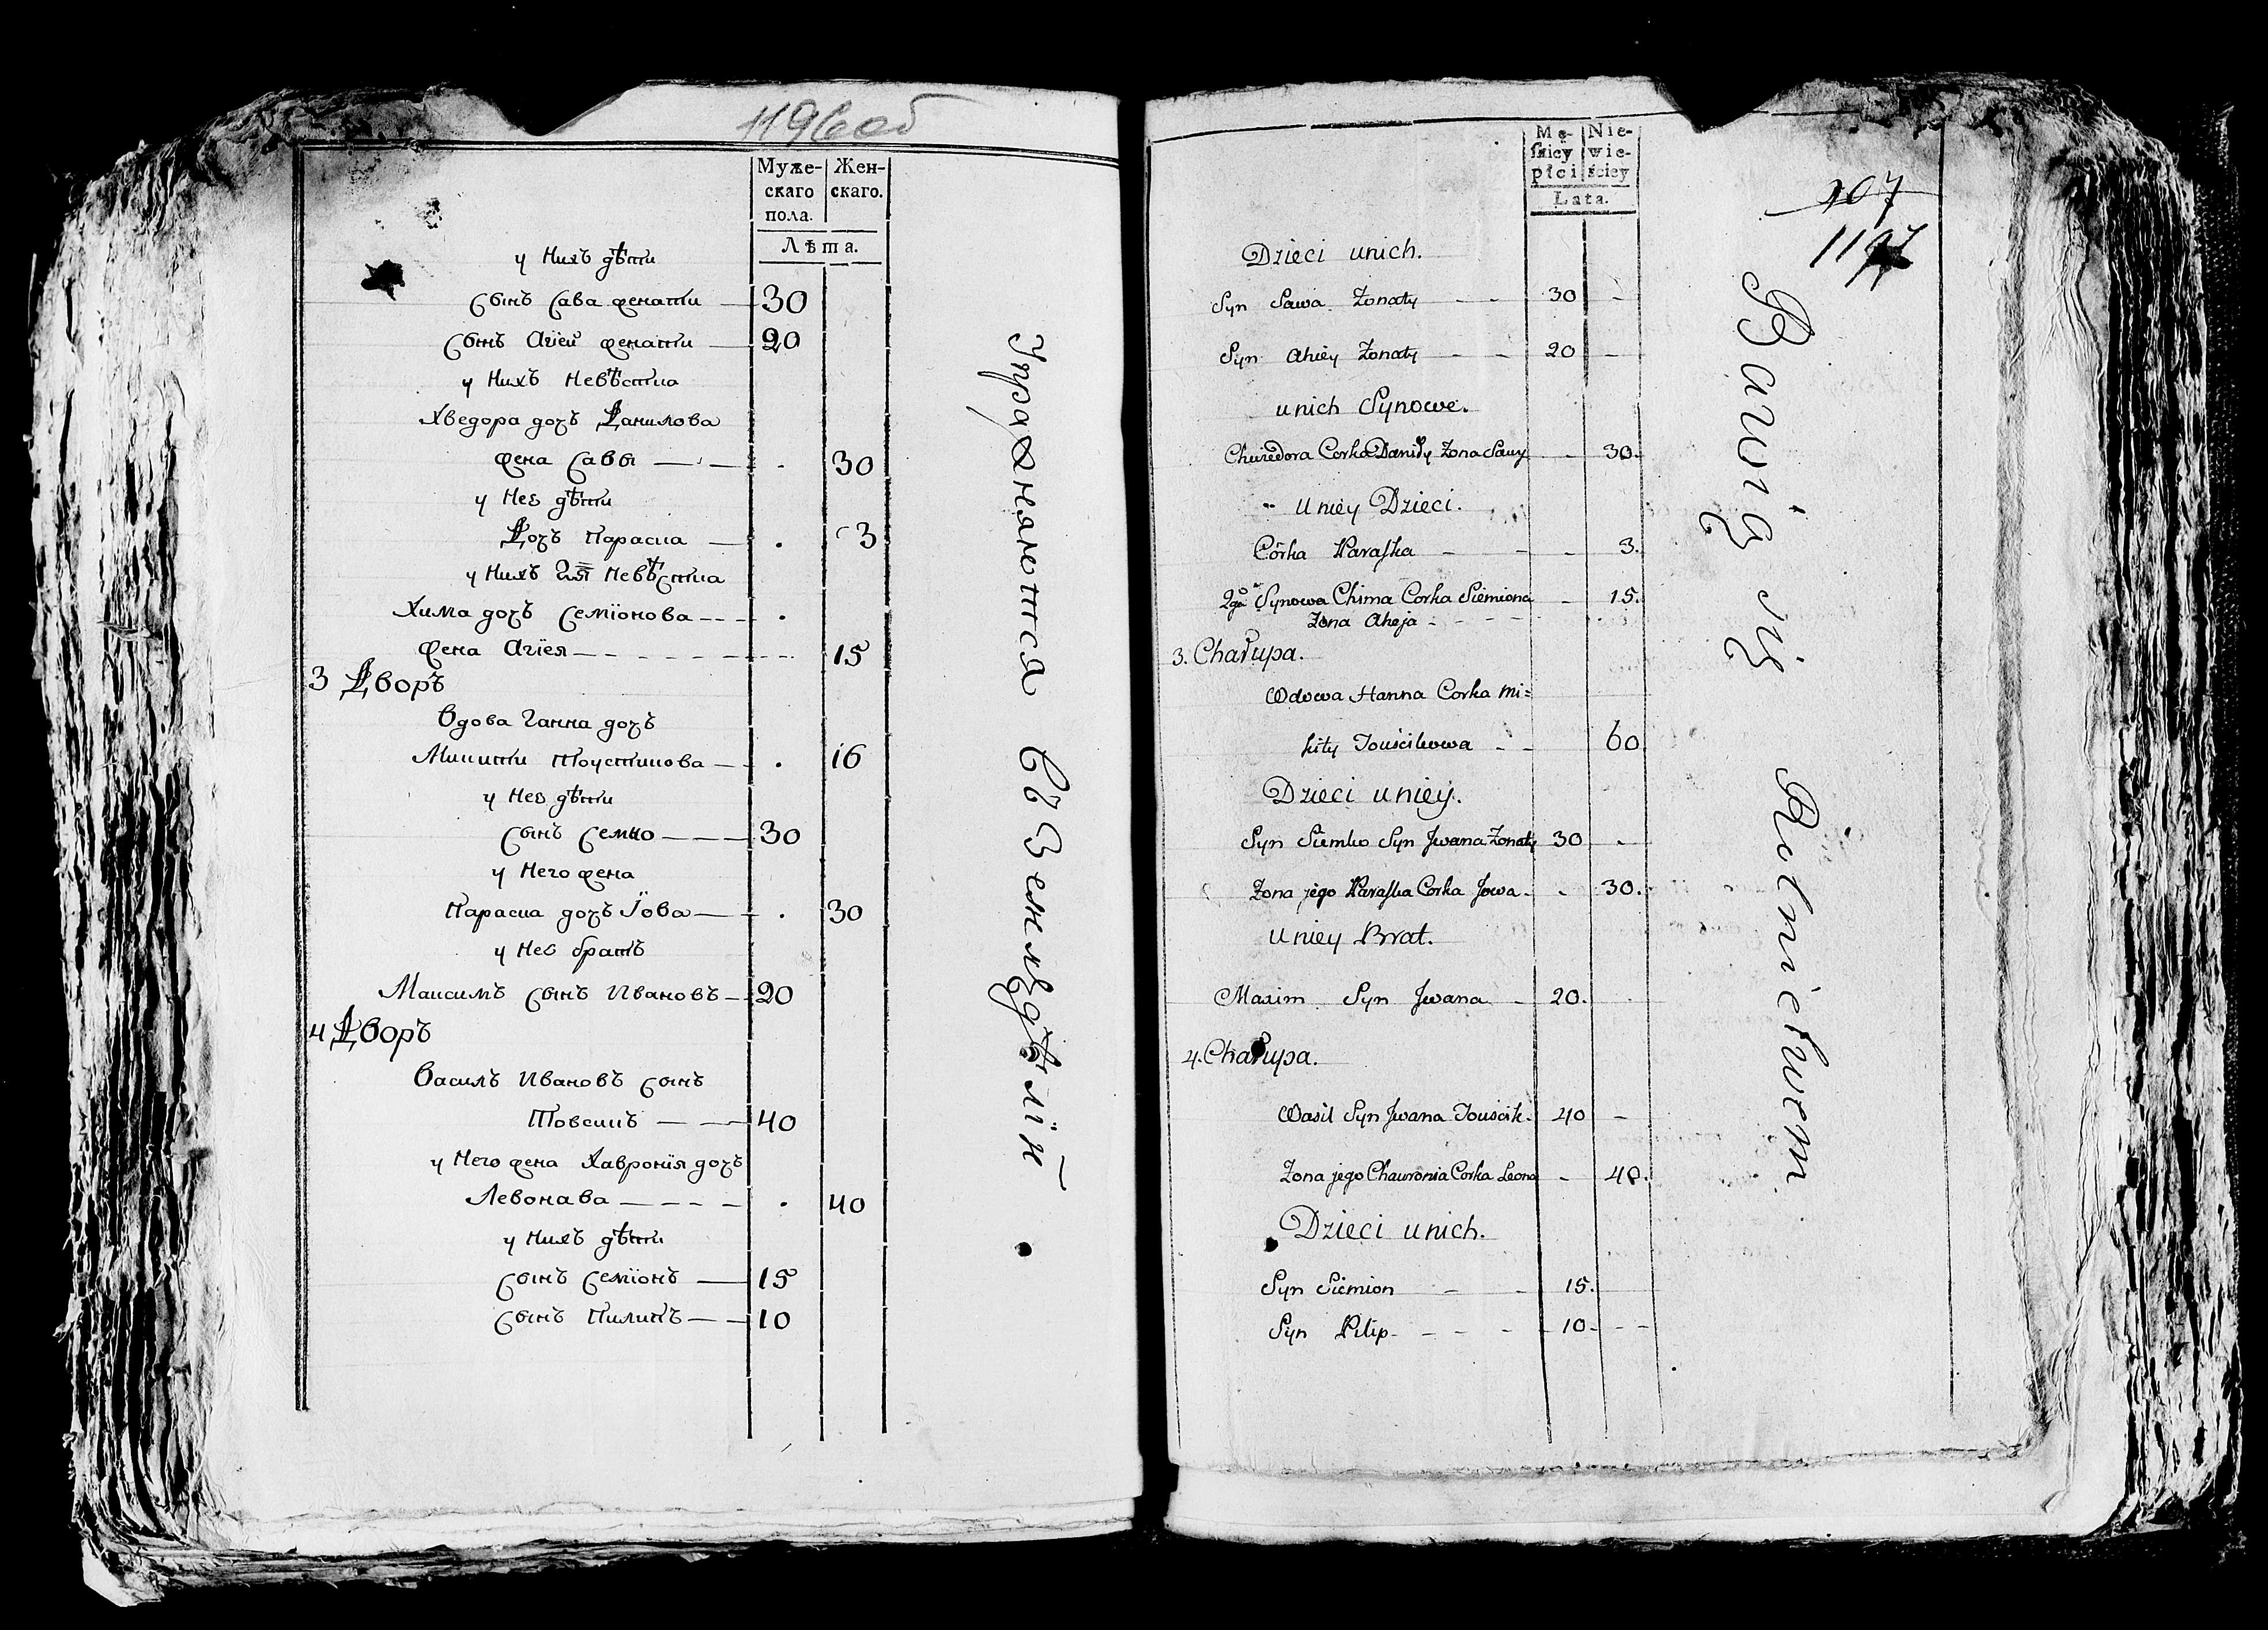 1196 об
Муже- Жен-
скаго скаго.
пола.
Лѣта.
у нихъ дѣти
сынъ Сава женати — 30
сынъ Агіей женати — 20
у нихъ невѣстка
Хведора дочъ Данилова
жена Савы — — . 30
у неѣ дѣти
Дочъ Параска — . 3
у нихъ 2я невѣстка
Хима дочъ Семіонова - - - .
жена Агіея — - - - - - - 15
3 Дворъ
Вдова Ганна дочъ
Микити Тоустикова — - . 16
у неѣ дѣти
сынъ Семко — — — 30
у него жена
Параска дочъ Іова — - . 30
у неѣ братъ
Максимъ сынъ Ивановъ - 20
4 Дворъ
Василъ Ивановъ сынъ
Товсикъ — — — 40
у него жена Хавронія дочъ
Левонава — - - - . 40
у нихъ дѣти
сынъ Семіонъ — 15
сынъ Пилипъ — — 10
Упражняются въ Земледѣліи
Mę- Nie-
ſkiey wie-
płci ściey
Lata.
107
1197
Dzieci unich.
Syn Sawa Żonaty - - 30 -
Syn Ahiey Żonaty - - 20 -
unich Synowe.
Chwedora Corka Daniły Żona Sawy - 30.
Uniey Dzieci.
Córka Paraſka - - - 3.
2ga Synowa Chima Corka Siemiona - 15.
Żona Aheja - - - -
3. Chałupa.
Wdowa Hanna Corka Mi=
kity Touścikowa - - 60
Dzieci uniey.
Syn Siemko Syn Jwana Żonaty 30 -
Żona jego Paraſka Corka Jowa - - 30.
Uniey Brat.
Maxim Syn Jwana - 20.
4. Chałupa.
Wasil Syn Jwana Touścik - 40 -
Żona jego Chauronia Corka Leona - 40.
Dzieci unich.
Syn Siemion - - 15.
Syn Pilip - - - - 10 - - -
Bawią się Rolnictwem